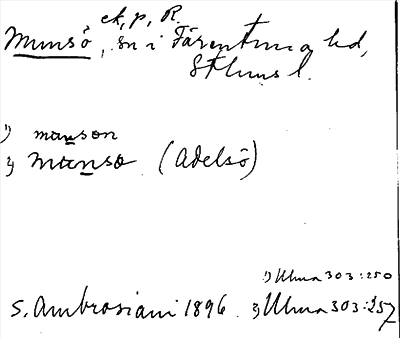 ek, p, R.
Munsö, sn i Färentuna hd,
Sthlms l.
1) manson
2) manso (Adelsö)
1) Ulma 303:250
S. Ambrosiani 1896. 2) Ulma 303:257